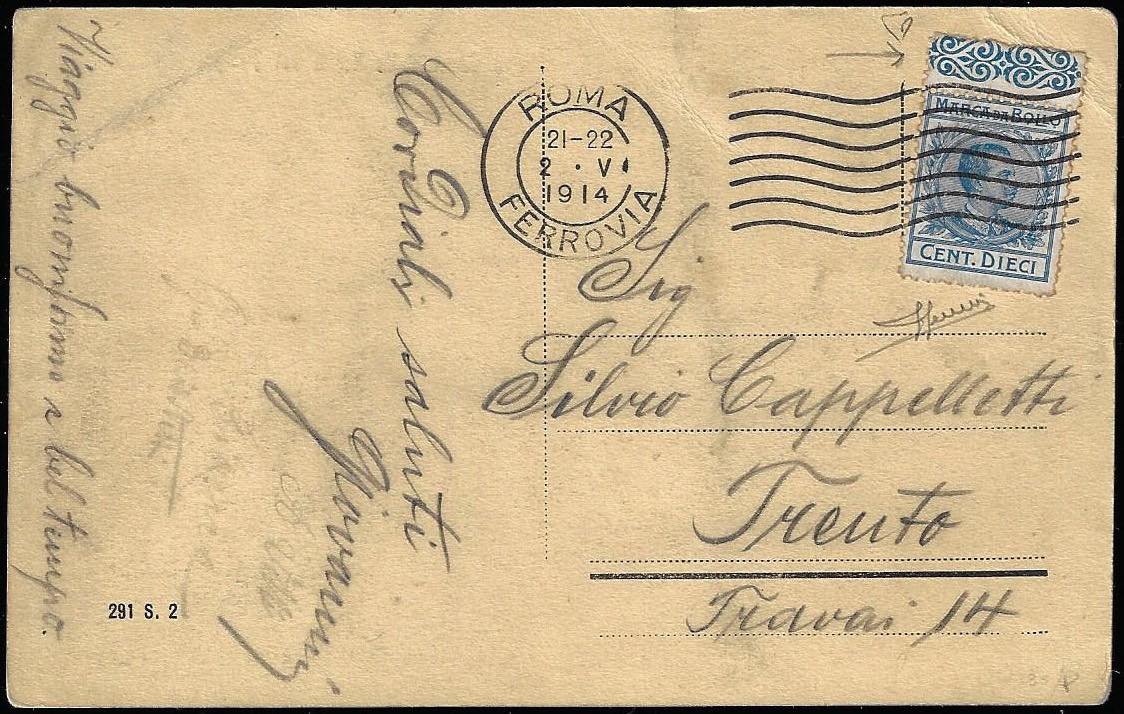 Viaggio buonissimo e bel tempo.
Cordiali saluti
Giovanni
291 S. 2
ROMA
21-22
2 · V
1914
FERROVIA
MARCA DA BOLLO
CENT. DIECI
Sig
Silvio Cappelletti
Trento
Travai 14